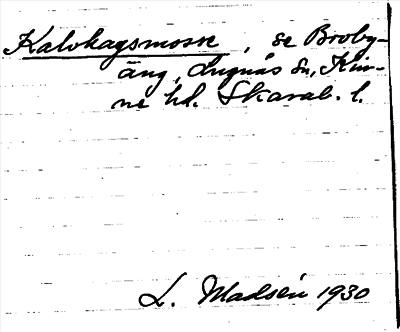 Kalvhagsmosse, se Broby-
äng, Lugnås sn, Kin-
ne hd. Skarab. l.
L. Madsén 1930